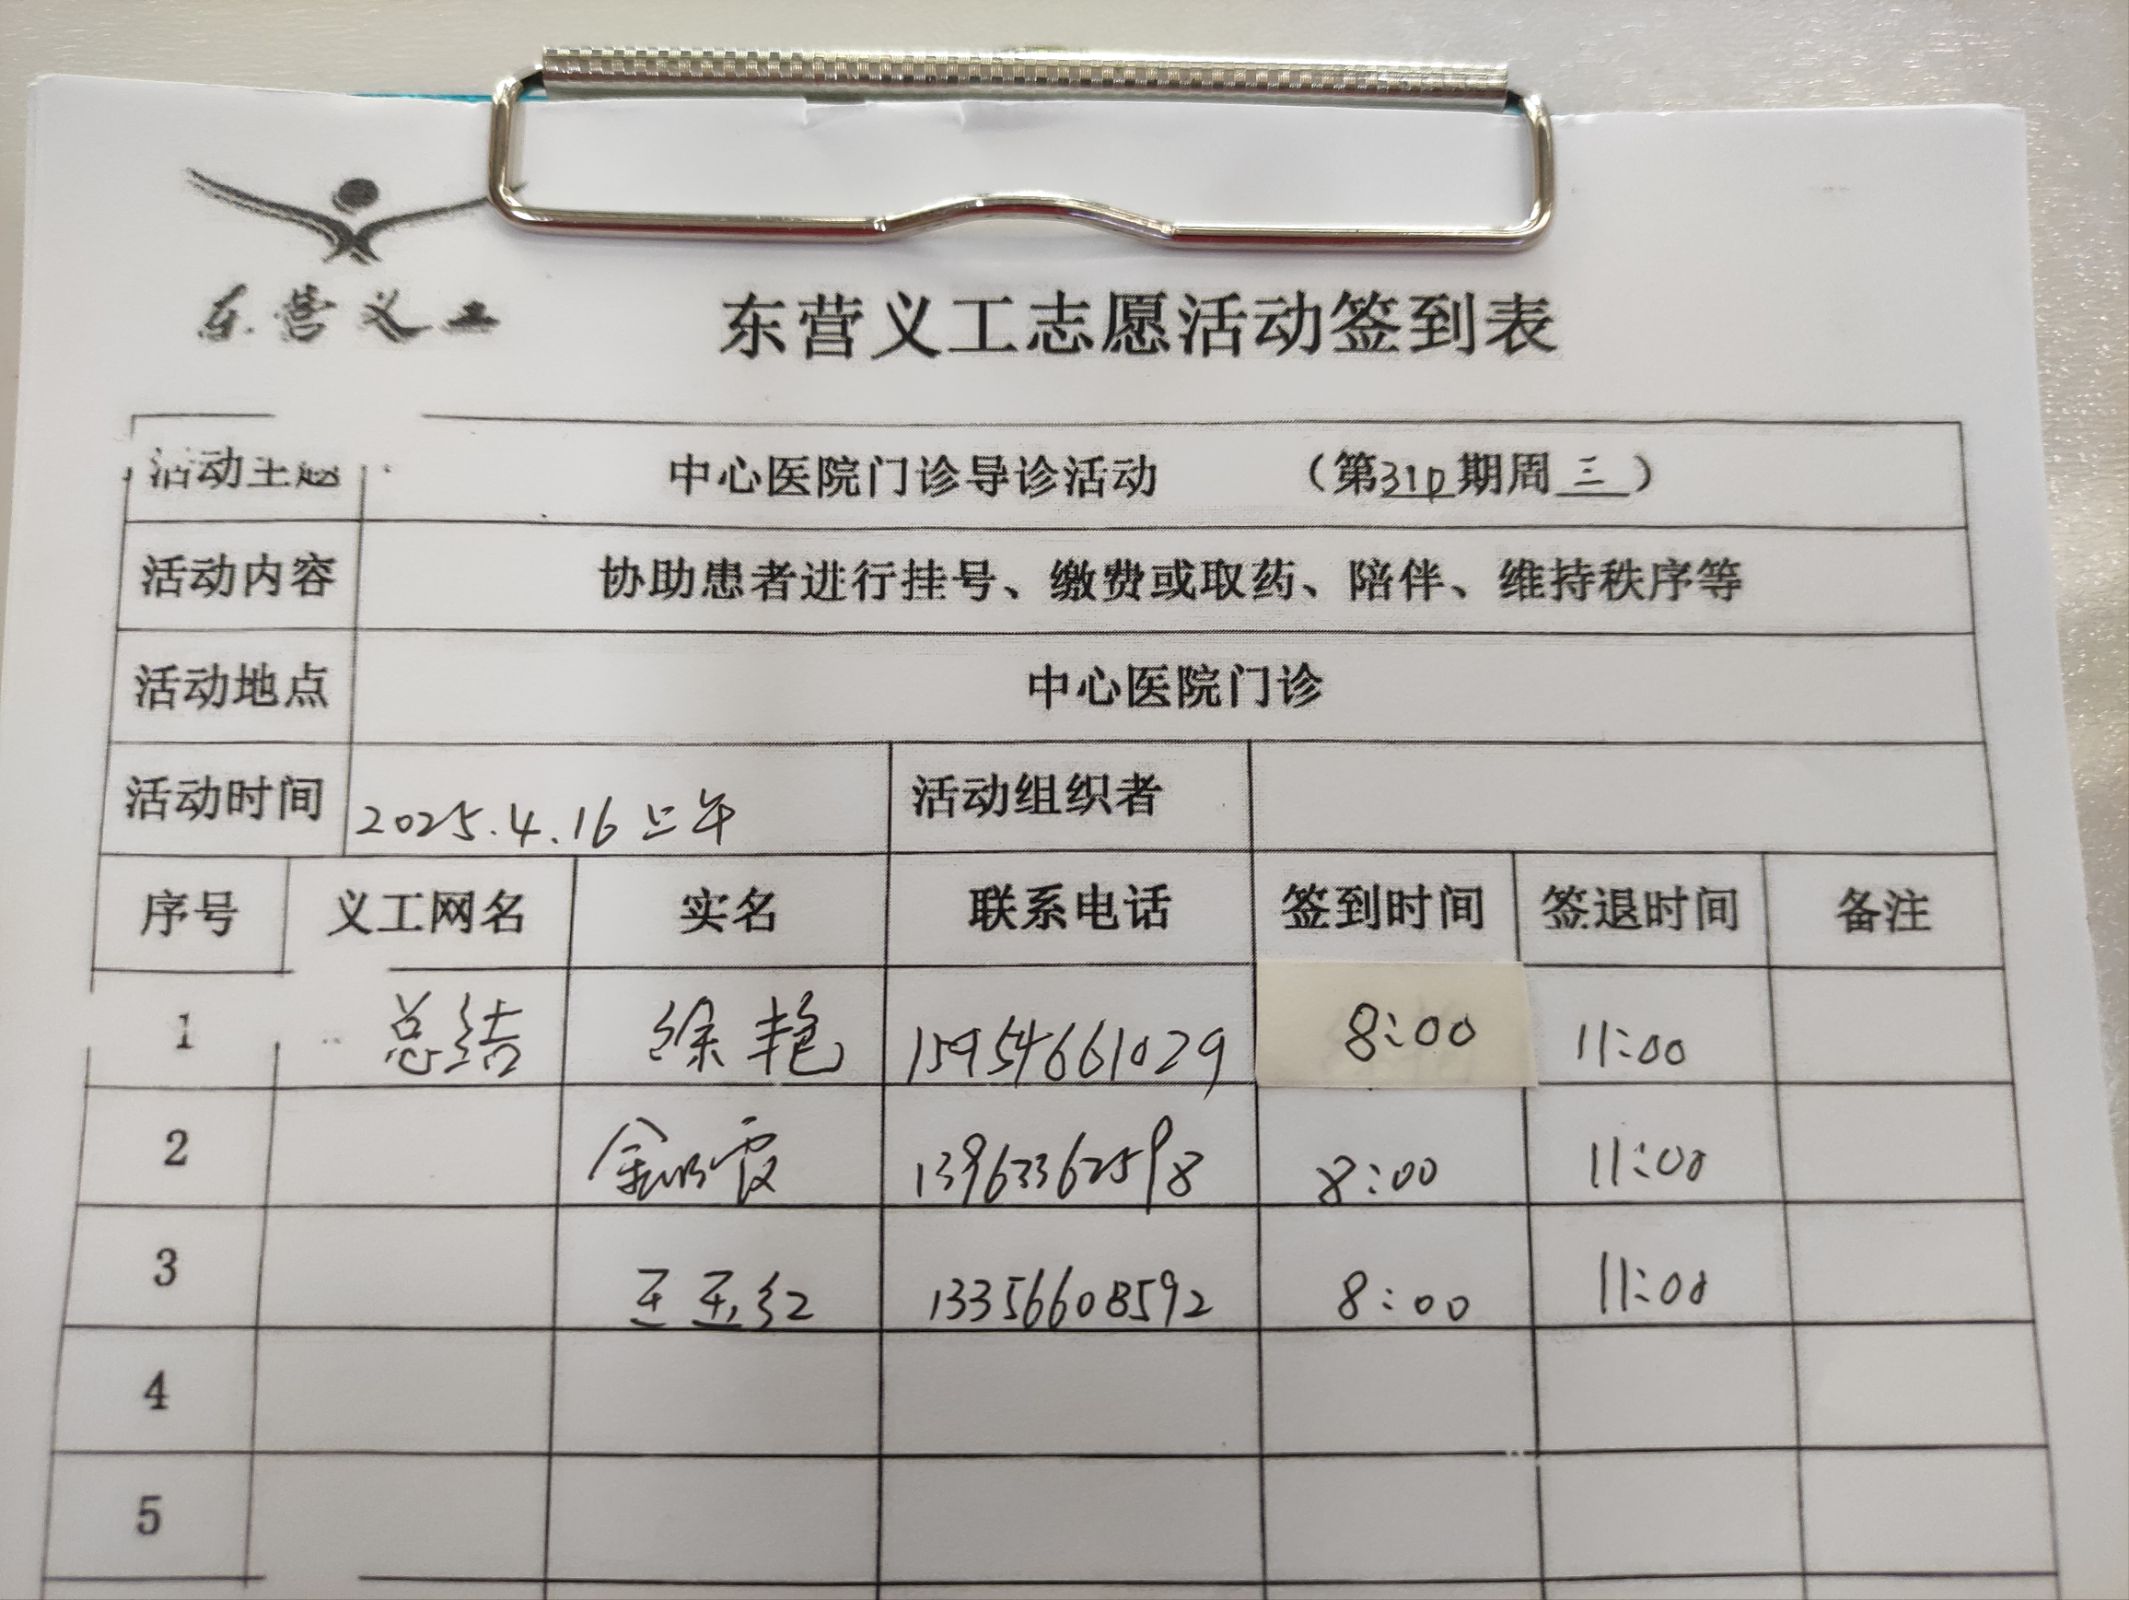 东营义工
东营义工志愿活动签到表
活动主题 中心医院门诊导诊活动 (第310期周三)
活动内容 协助患者进行挂号、缴费或取药、陪伴、维持秩序等
活动地点 中心医院门诊
活动时间 2025.4.16上午 活动组织者
序号 义工网名 实名 联系电话 签到时间 签退时间 备注
1 总结 徐艳 15954661029 8:00 11:00
2 霞 13963362598 8:00 11:00
3 王玉红 13356608592 8:00 11:00
4
5